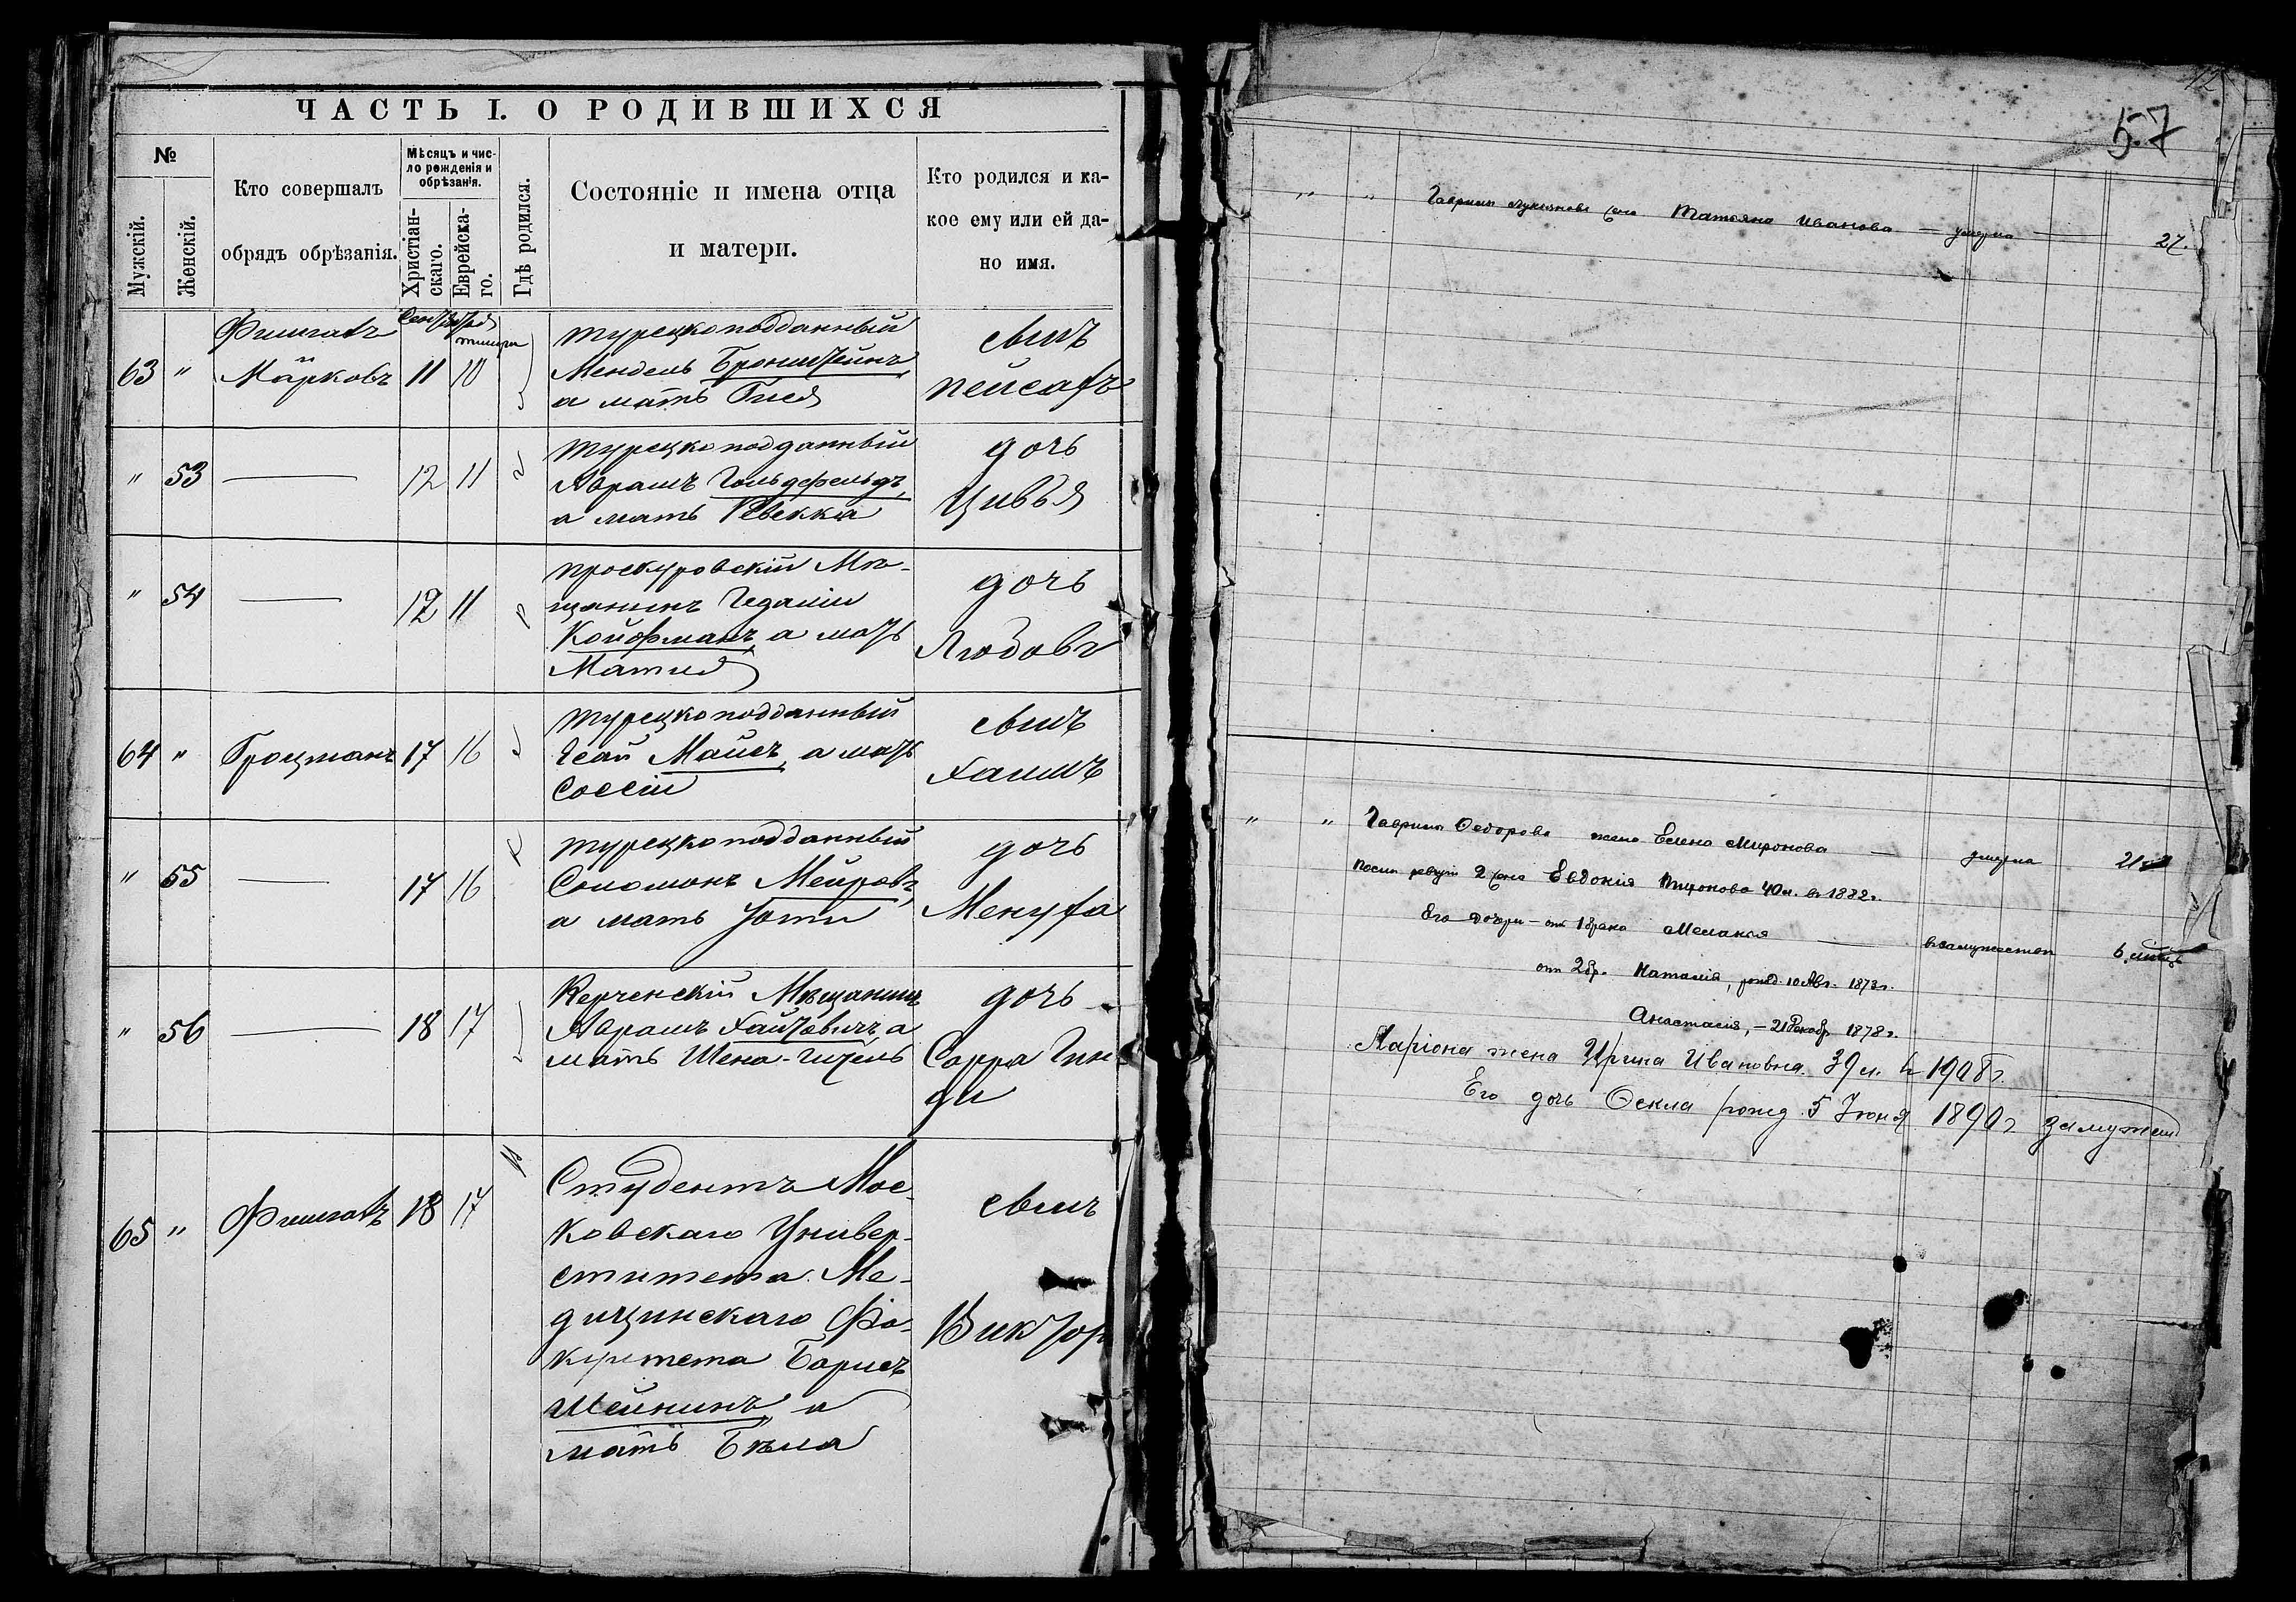 ЧАСТЬ I. О РОДИВШИХСЯ
№
Мужскій.
Женскій.
Кто совершалъ
обрядъ обрѣзанія.
Мѣсяцъ и чис-
ло рожденія и
обрѣзанія.
Христіан-
скаго.
Еврейска-
го.
Гдѣ родился.
Состояніе и имена отца
и матери.
Кто родился и ка-
кое ему или ей да-
но имя.
63 "
Марковъ
11 10
турецкоподданный
Мендель Бронштейнъ,
а мать Гися
сынъ
Пейсахъ
" 53 —
12 11
турецкоподданный
Абрамъ Гольдфельдъ,
а мать Ревекка
дочь
Цивья
" 54 —
12 11
проскуровскій Мѣ-
щанинъ Гедалій
Койфманъ, а мать
Матия
дочь
Любовь
64 " Гроцманъ
17 16
турецкоподданный
Исай Майсъ, а мать
Соссій
сынъ
Хаимъ
" 55 —
17 16
турецкоподданный
Соломонъ Мейровъ,
а мать
дочь
Менуха
" 56 —
18 17
Керченскій Мѣщанинъ
Абрамъ Хаймовичъ, а
мать Шена-
дочь
Сарра Гин-
ди
65 "
18 17
Студентъ Мос-
ковскаго Универ-
ситета Ме-
дицинскаго Фа-
культета Борисъ
Шейнинъ, а
мать Бѣла
сынъ
Викторъ
57
" " Гаврилы Лукьянова жена Татьяна Иванова — умерла — 27.
" " Гаврилы Федорова жена Елена Миронова — умерла 21
После ревизіи 2 жена Евдокія 40 л. въ 1882 г.
Его дочери — отъ 1 брака Меланья — въ замужестве 6
отъ 2 бр. Наталія, рожд. 10 Авг. 1873 г.
Анастасія, — 21 Декабр 1878 г.
Ларіона жена Ирина Ивановна 39 л. въ 1908 г.
Его дочь Фекла рожд. 5 Іюня 1890 г замужем